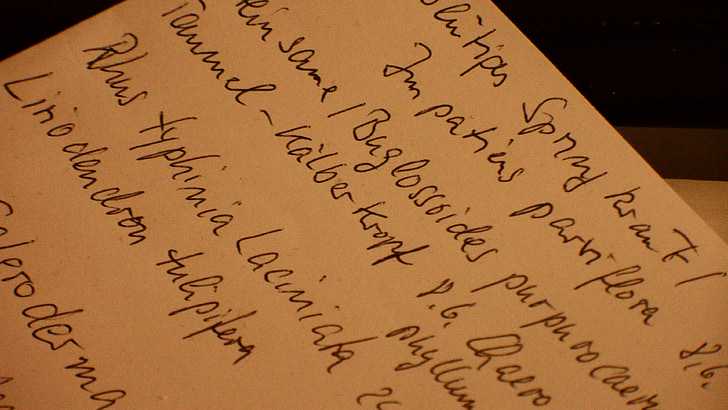 blütiges Springkraut /
Impatiens parviflora 8.6.
einsame / Buglossoides purpurocaeru
Taumel-Kälberkropf 8.6. Chaero
phyllum
Rhus typhinia Laciniata 2
Liriodendron tulipifera
Scleroderma